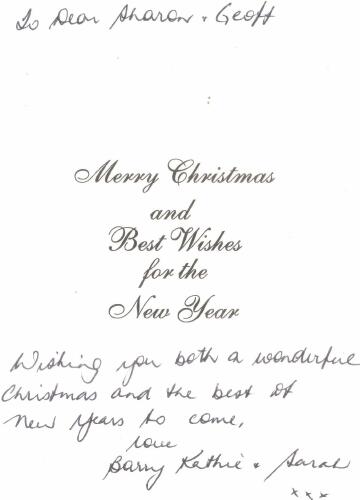 To Dear Sharon & Geoff
Merry Christmas
and
Best Wishes
for the
New Year
Wishing you both a wonderful
Christmas and the best of
New Years to come,
love
Barry Kathie & Sarah
xxx